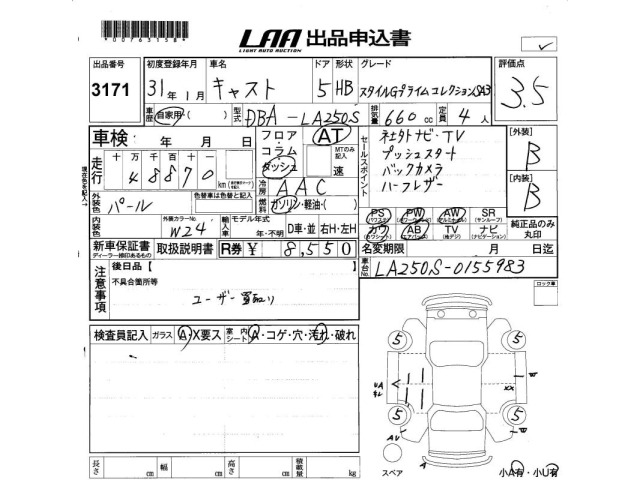 *00763158*
LAA 出品申込書
LIGHT AUTO AUCTION
出品番号 初度登録年月 車名 ドア 形状 グレード 評価点
3171 31年1月 キャスト 5 HB スタイルGプライムコレクションSA3 3.5
車歴 自家用・( ) 型式 DBA-LA250S 排気量 660cc 定員 4人
車検 年 月 日 フロア・コラム・ダッシュ AT MTのみ記入 速
セールスポイント
ネセタトナビ・TV
プッシュスタート
バックカメラ
ハーフレザー
[外装] B
[内装] B
走行 十 万 千 百 十 一
48870 km
現在色を記入→
外装色 パール 色替車は色替と記入
冷房 AAC
燃料 ガソリン・軽油・( )
外装カラーNo. W24 輸入車 モデル年式 年・不明 D車・並 右H・左H
PS (パワステ) PW (パワーウィンドウ) AW (アルミホイル) SR (サンルーフ)
カワ AB (エアバック) TV (地デジ) ナビ (ナビゲーション)
純正品のみ丸印
新車保証書 ディーラー捺印あるもの 取扱説明書 R券 ¥ 8,550 名変期限 月 日迄
車台No. LA250S-0155983
注意事項 後日品【 】
不具合箇所等
ユーザー買取り
ロック車
検査員記入 ガラス A・X要ス 室内 シート A・コゲ・穴・汚れ・破れ
5 5
UA キレ W XX
5 5
AU W
A
スペア 小A有・小U有
長さ cm 幅 cm 高さ cm 積載量 kg